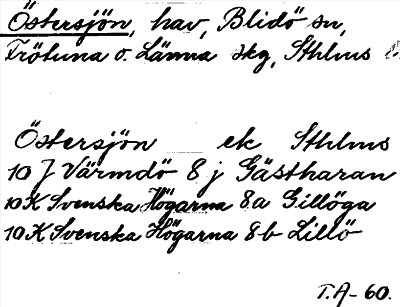 Östersjön, hav, Blidö sn,
Frötuna o. Länna skg, Sthlms
Östersjön ek Sthlms
10 J Värmdö 8 j Gästharan
10 K Svenska Högarna 8a Gillöga
10 K Svenska Högarna 8b Lillö
T.A-60.